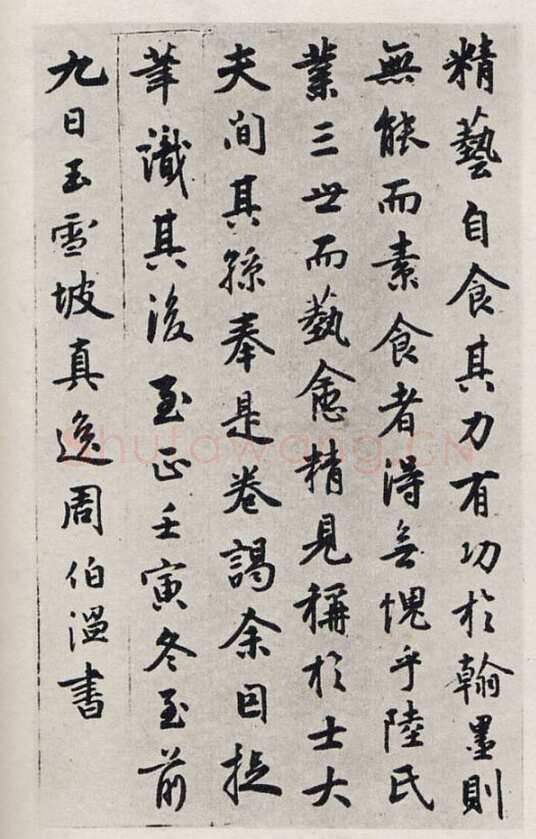 精藝自食其力有功於翰墨則
無能而素食者得無愧乎陸氏
業三世而藝愈精見稱於士大
夫間其孫奉是卷謁余因捉
筆識其後至正壬寅冬至前
九日玉雪坡真逸周伯溫書
shufawang.CN